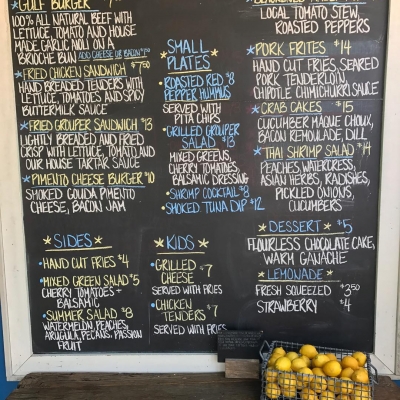 GULF BURGER
100% ALL NATURAL BEEF WITH
LETTUCE, TOMATO AND HOUSE
MADE GARLIC AIOLI ON A
BRIOCHE BUN ADD CHEESE OR BACON
FRIED CHICKEN SANDWICH $7.50
HAND BREADED TENDERS WITH
LETTUCE, TOMATOES AND SPICY
BUTTERMILK SAUCE
FRIED GROUPER SANDWICH $13
LIGHTLY BREADED AND FRIED
CRISP WITH LETTUCE, TOMATO, AND
OUR HOUSE TARTAR SAUCE
PIMENTO CHEESE BURGER $10
SMOKED GOUDA PIMENTO
CHEESE, BACON JAM
SIDES
HAND CUT FRIES $4
MIXED GREEN SALAD $5
CHERRY TOMATOES +
BALSAMIC
SUMMER SALAD $8
WATERMELON, PEACHES,
ARUGULA, PECANS, PASSION
FRUIT
SMALL
PLATES
ROASTED RED $8
PEPPER HUMMUS
SERVED WITH
PITA CHIPS
GRILLED GROUPER
SALAD $13
MIXED GREENS,
CHERRY TOMATOES,
BALSAMIC DRESSING
SHRIMP COCKTAIL $8
SMOKED TUNA DIP $12
KIDS
GRILLED $7
CHEESE
SERVED WITH FRIES
CHICKEN $7
TENDERS
SERVED WITH FRIES
LOCAL TOMATO STEW,
ROASTED PEPPERS
PORK FRITES $14
HAND CUT FRIES, SEARED
PORK TENDERLOIN,
CHIPOTLE CHIMICHURRI SAUCE
CRAB CAKES $15
CUCUMBER MAQUE CHOUX,
BACON REMOULADE, DILL
THAI SHRIMP SALAD $14
PEACHES, WATERCRESS,
ASIAN HERBS, RADISHES,
PICKLED ONIONS,
CUCUMBERS
DESSERT $5
FLOURLESS CHOCOLATE CAKE,
WARM GANACHE
LEMONADE
FRESH SQUEEZED $3.50
STRAWBERRY $4